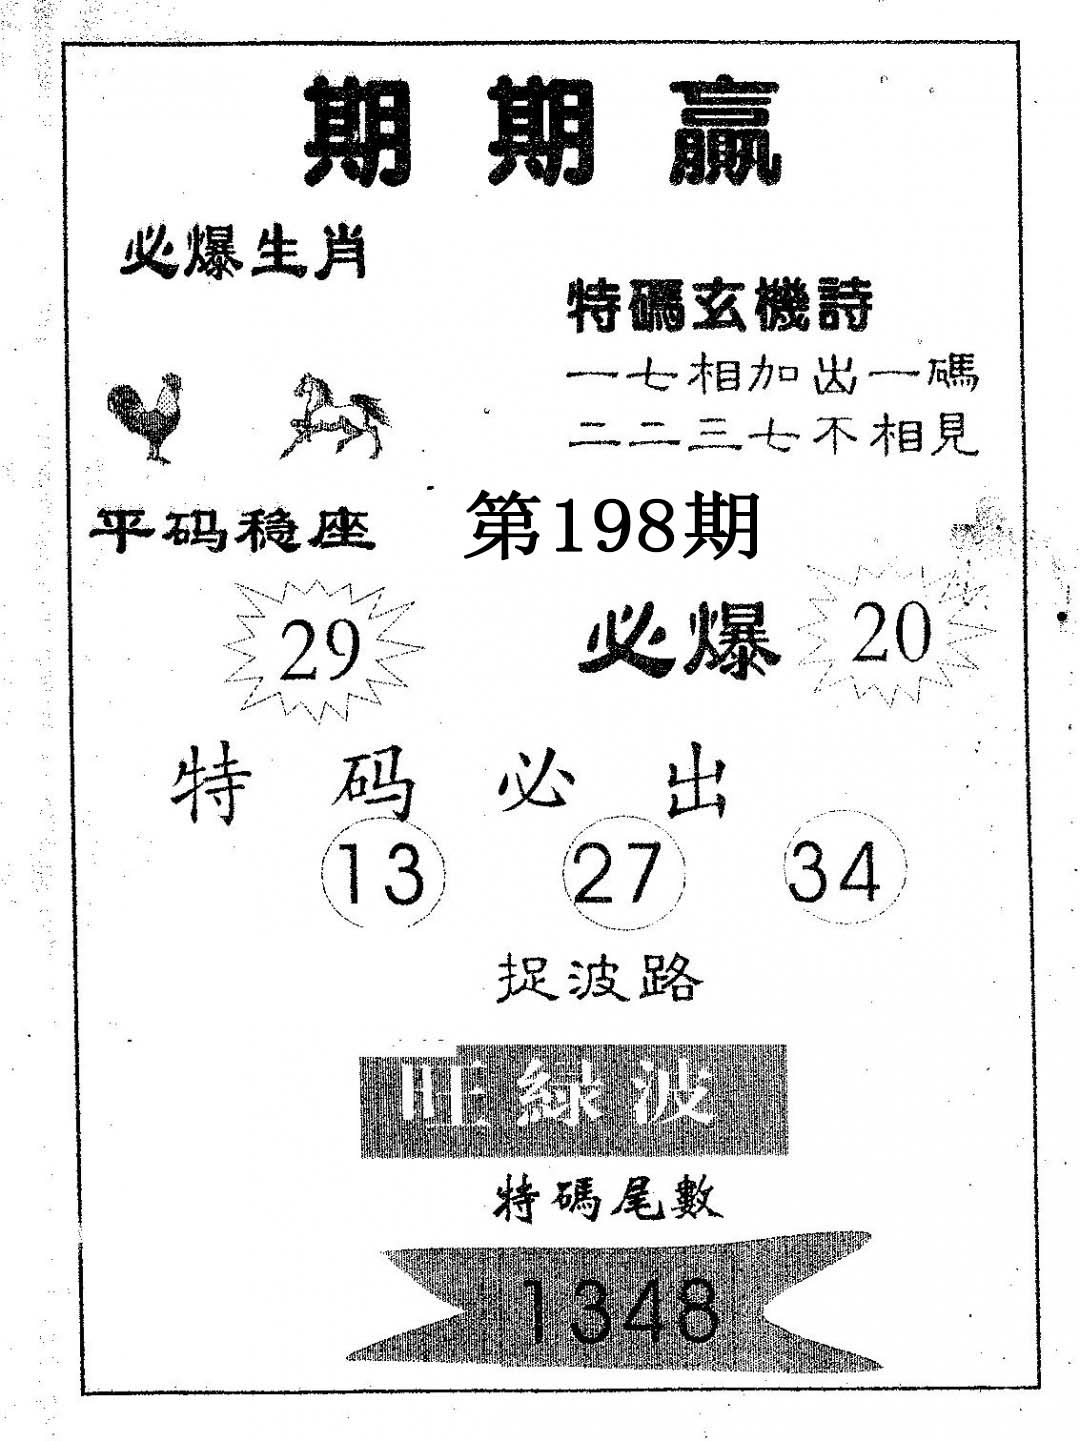 期期贏
必爆生肖
特碼玄機詩
一七相加出一碼
二二三七不相見
平码稳座
第198期
29
必爆
20
特码必出
13 27 34
捉波路
旺綠波
特碼尾數
1348